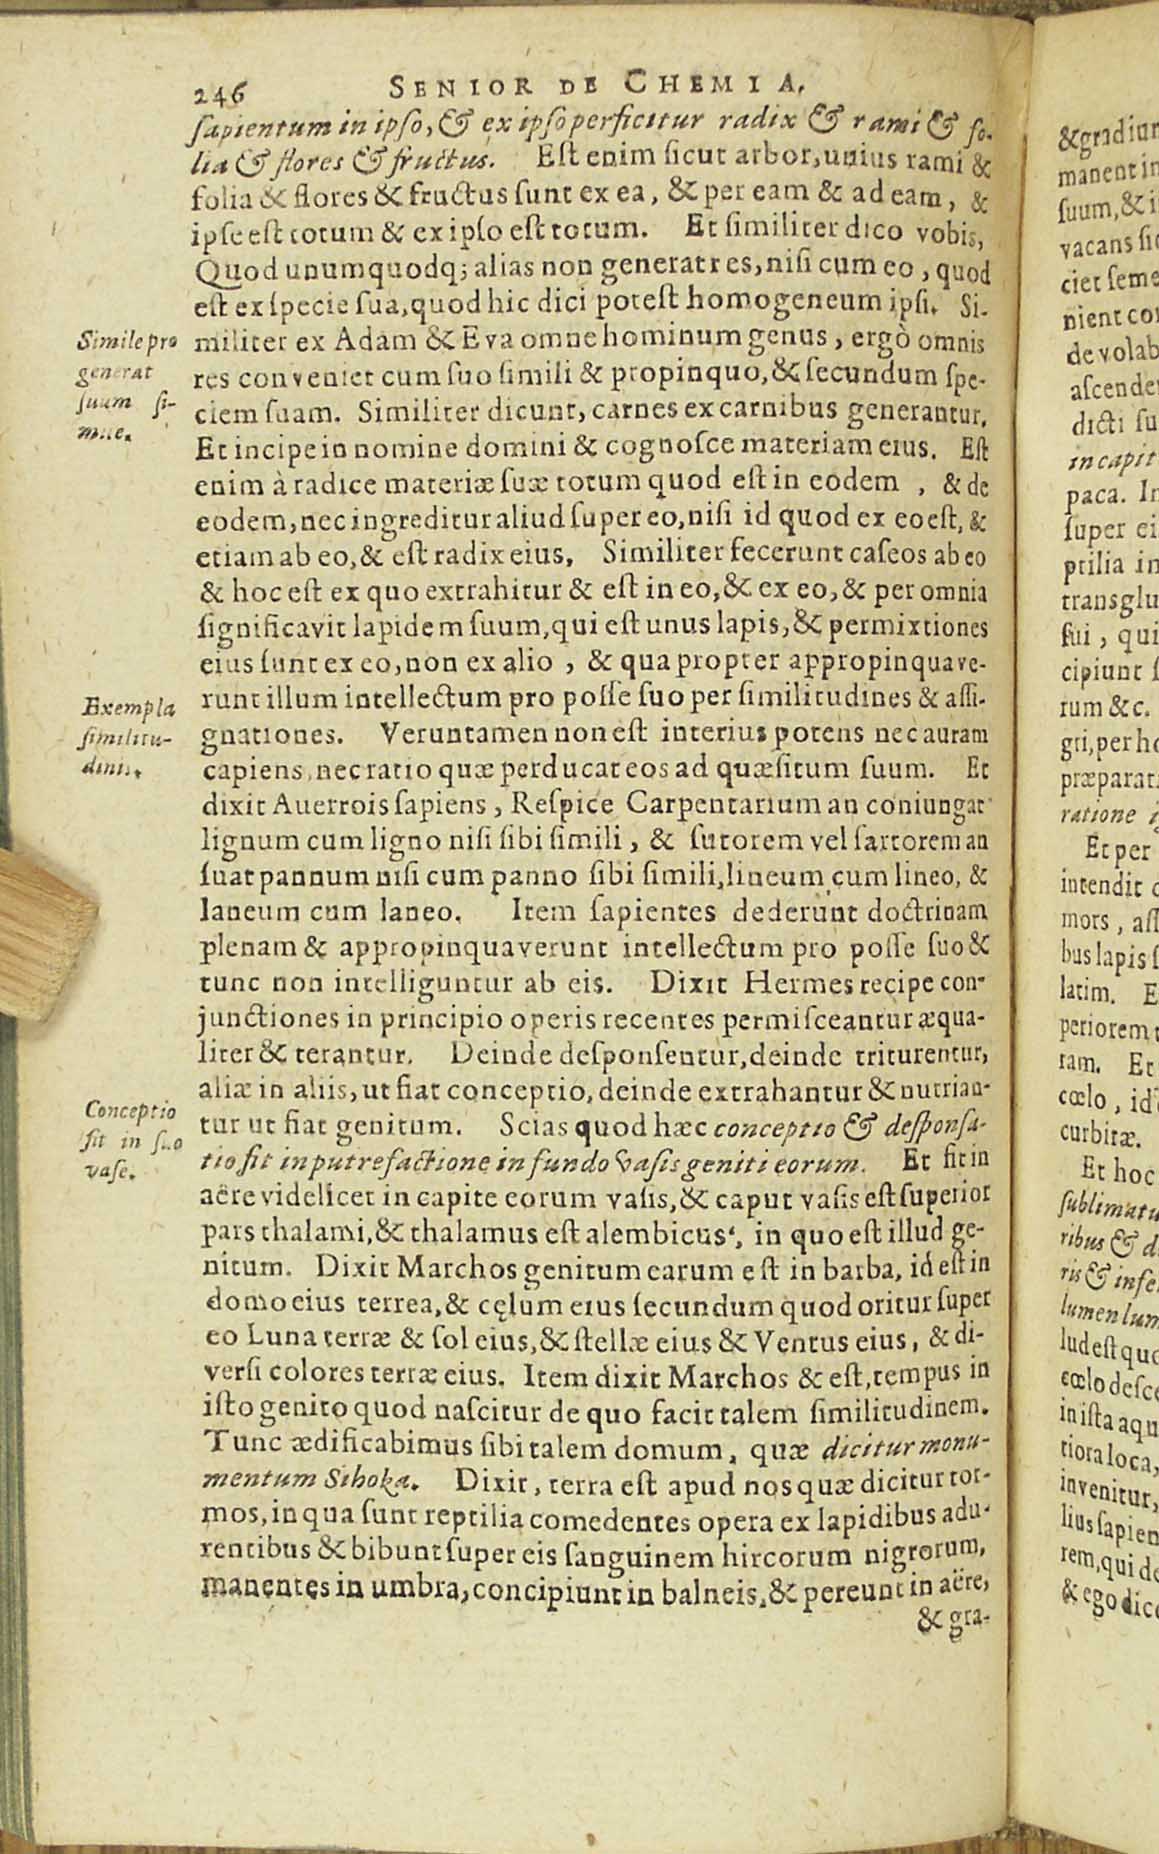 246 SENIOR DE CHEMIA.
sapientum in ipso, & ex ipso perficitur radix & rami & fo-
lia & flores & fructus. Est enim sicut arbor, unius rami &
folia & flores & fructus sunt ex ea, & per eam & ad eam, &
ipse est totum & ex ipso est totum. Et similiter dico vobis,
Quod unumquodq; alias non generat res, nisi cum eo, quod
est ex specie sua, quod hic dici potest homogeneum ipsi. Si-
Simile pro
generat
suum si-
mile.
militer ex Adam & Eva omne hominum genus, ergò omnis
res conveniet cum suo simili & propinquo, & secundum spe-
ciem suam. Similiter dicunt, carnes ex carnibus generantur.
Et incipe in nomine domini & cognosce materiam eius. Est
enim à radice materiæ suæ totum quod est in eodem, & de
eodem, nec ingreditur aliud super eo, nisi id quod ex eo est, &
etiam ab eo, & est radix eius. Similiter fecerunt caseos ab eo
& hoc est ex quo extrahitur & est in eo, & ex eo, & per omnia
significavit lapidem suum, qui est unus lapis, & permixtiones
eius sunt ex eo, non ex alio, & qua propter appropinquave-
Exempla
similitu-
dinis.
runt illum intellectum pro posse suo per similitudines & assi-
gnationes. Veruntamen non est interius potens nec auram
capiens, nec ratio quæ perducat eos ad quæsitum suum. Et
dixit Averrois sapiens, Respice Carpentarium an coniungat
lignum cum ligno nisi sibi simili, & sutorem vel sartorem an
suat pannum nisi cum panno sibi simili, lineum cum lineo, &
laneum cum laneo. Item sapientes dederunt doctrinam
plenam & appropinquaverunt intellectum pro posse suo &
tunc non intelliguntur ab eis. Dixit Hermes recipe con-
junctiones in principio operis recentes permisceantur æqua-
liter & terantur. Deinde desponsentur, deinde triturentur,
aliæ in aliis, ut fiat conceptio, deinde extrahantur & nutrian-
Conceptio
fit in suo
vase.
tur ut fiat genitum. Scias quod hæc conceptio & desponsa-
tio fit in putrefactione in fundo vasis geniti eorum. Et fit in
aëre videlicet in capite eorum vasis, & caput vasis est superior
pars thalami, & thalamus est alembicus, in quo est illud ge-
nitum. Dixit Marchos genitum earum est in barba, id est in
domo eius terrea, & cęlum eius secundum quod oritur super
eo Luna terræ & sol eius, & stellæ eius & Ventus eius, & di-
versi colores terræ eius. Item dixit Marchos & est, tempus in
isto genito quod nascitur de quo facit talem similitudinem.
Tunc ædificabimus sibi talem domum, quæ dicitur monu-
mentum Sihoka. Dixit, terra est apud nos quæ dicitur tot-
mos, in qua sunt reptilia comedentes opera ex lapidibus adu-
rentibus & bibunt super eis sanguinem hircorum nigrorum,
manentes in umbra, concipiunt in balneis, & pereunt in aëre,
& gra-
& gradiun
manent in
suum, & i
vacans sic
ciet seme
nient co
de volab
ascende
dicti su
in capit
paca. In
super ei
ptilia in
transglu
sui, qui
cipiunt s
rum &c.
gri, per ho
præparat
ratione i
Et per
intendit
mors, ass
bus lapis s
latim. E
periorem
ram. Et
cœlo, id
curbitæ.
Et hoc
sublimatu
ribus & d
ris & infe
lumen lum
lud est quo
cœlo desce
in ista aqu
tiora loca,
invenitur,
lius sapien
rem, qui de
& ego dico